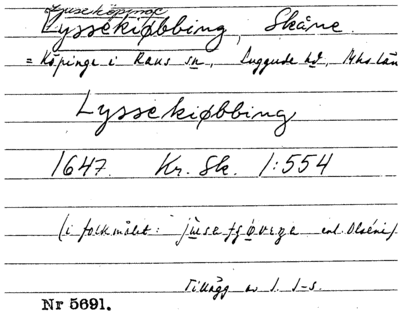 Ljuseköpinge
Lyssekiøbbing, Skåne.
= Köpinge i Raus sn, Luggude hd, Mhs län
Lyssekiøbbing
1647. Kr. Sk. 1:554
(i folkmålet: enl. Olséni)
Tillägg av I. I-s.
Nr 5691.